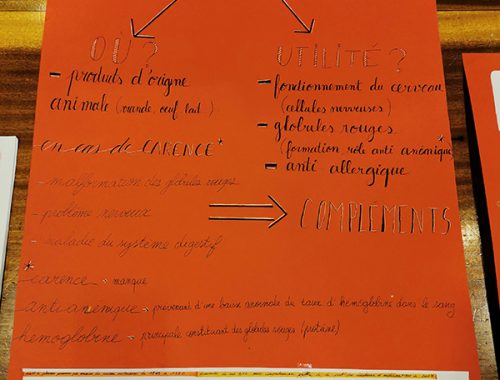 OÙ ?
- produits d'origine
animale (viande, oeuf, lait...)
UTILITÉ ?
- fonctionnement du cerveau
(cellules nerveuses)
- globules rouges
(formation rôle anti anémique*
- anti allergique
en cas de CARENCE*
- malformation des globules rouges
- problème nerveux
- maladie du système digestif
COMPLÉMENTS
*carence → manque
antianémique → prévenant d'une baisse anormale du taux d'hémoglobine dans le sang
hémoglobine → principale constituant des globules rouges (protéine)